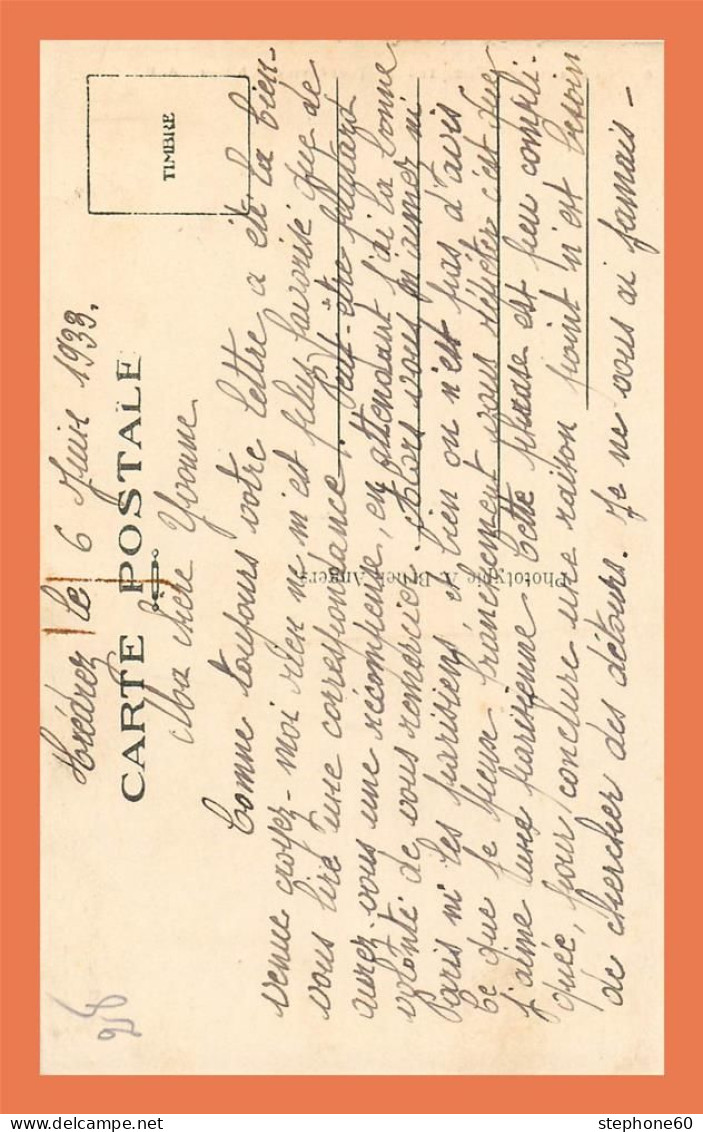 le 6 Juin 1933.
CARTE POSTALE
TIMBRE
Ma chère Yvonne
Comme toujours votre lettre a été la bien-
venue croyez-moi rien ne m'est plus favorisé que de
vous lire une correspondance, peut-être plutard
aurez-vous une récompense, en attendant j'ai la bonne
volonté de vous remercier. Alors vous n'aimez ni
Paris ni les parisiens et bien on n'est pas d'avis,
Ce que je peux franchement vous répéter c'est que
j'aime une parisienne. Cette phrase est peu compli-
quée, pour conclure une raison point n'est besoin
de chercher des détours. Je ne vous ai jamais -
Phototypie A. Bruel Angers
218
stephone60